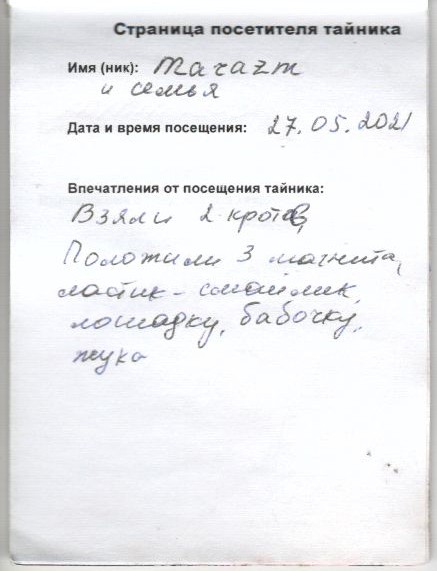 Страница посетителя тайника
Имя (ник): Marazm
и семья
Дата и время посещения: 27.05.2021
Впечатления от посещения тайника:
Взяли 2 кротов,
Положили 3 магнита,
ластик - смайлик,
лошадку, бабочку,
жука